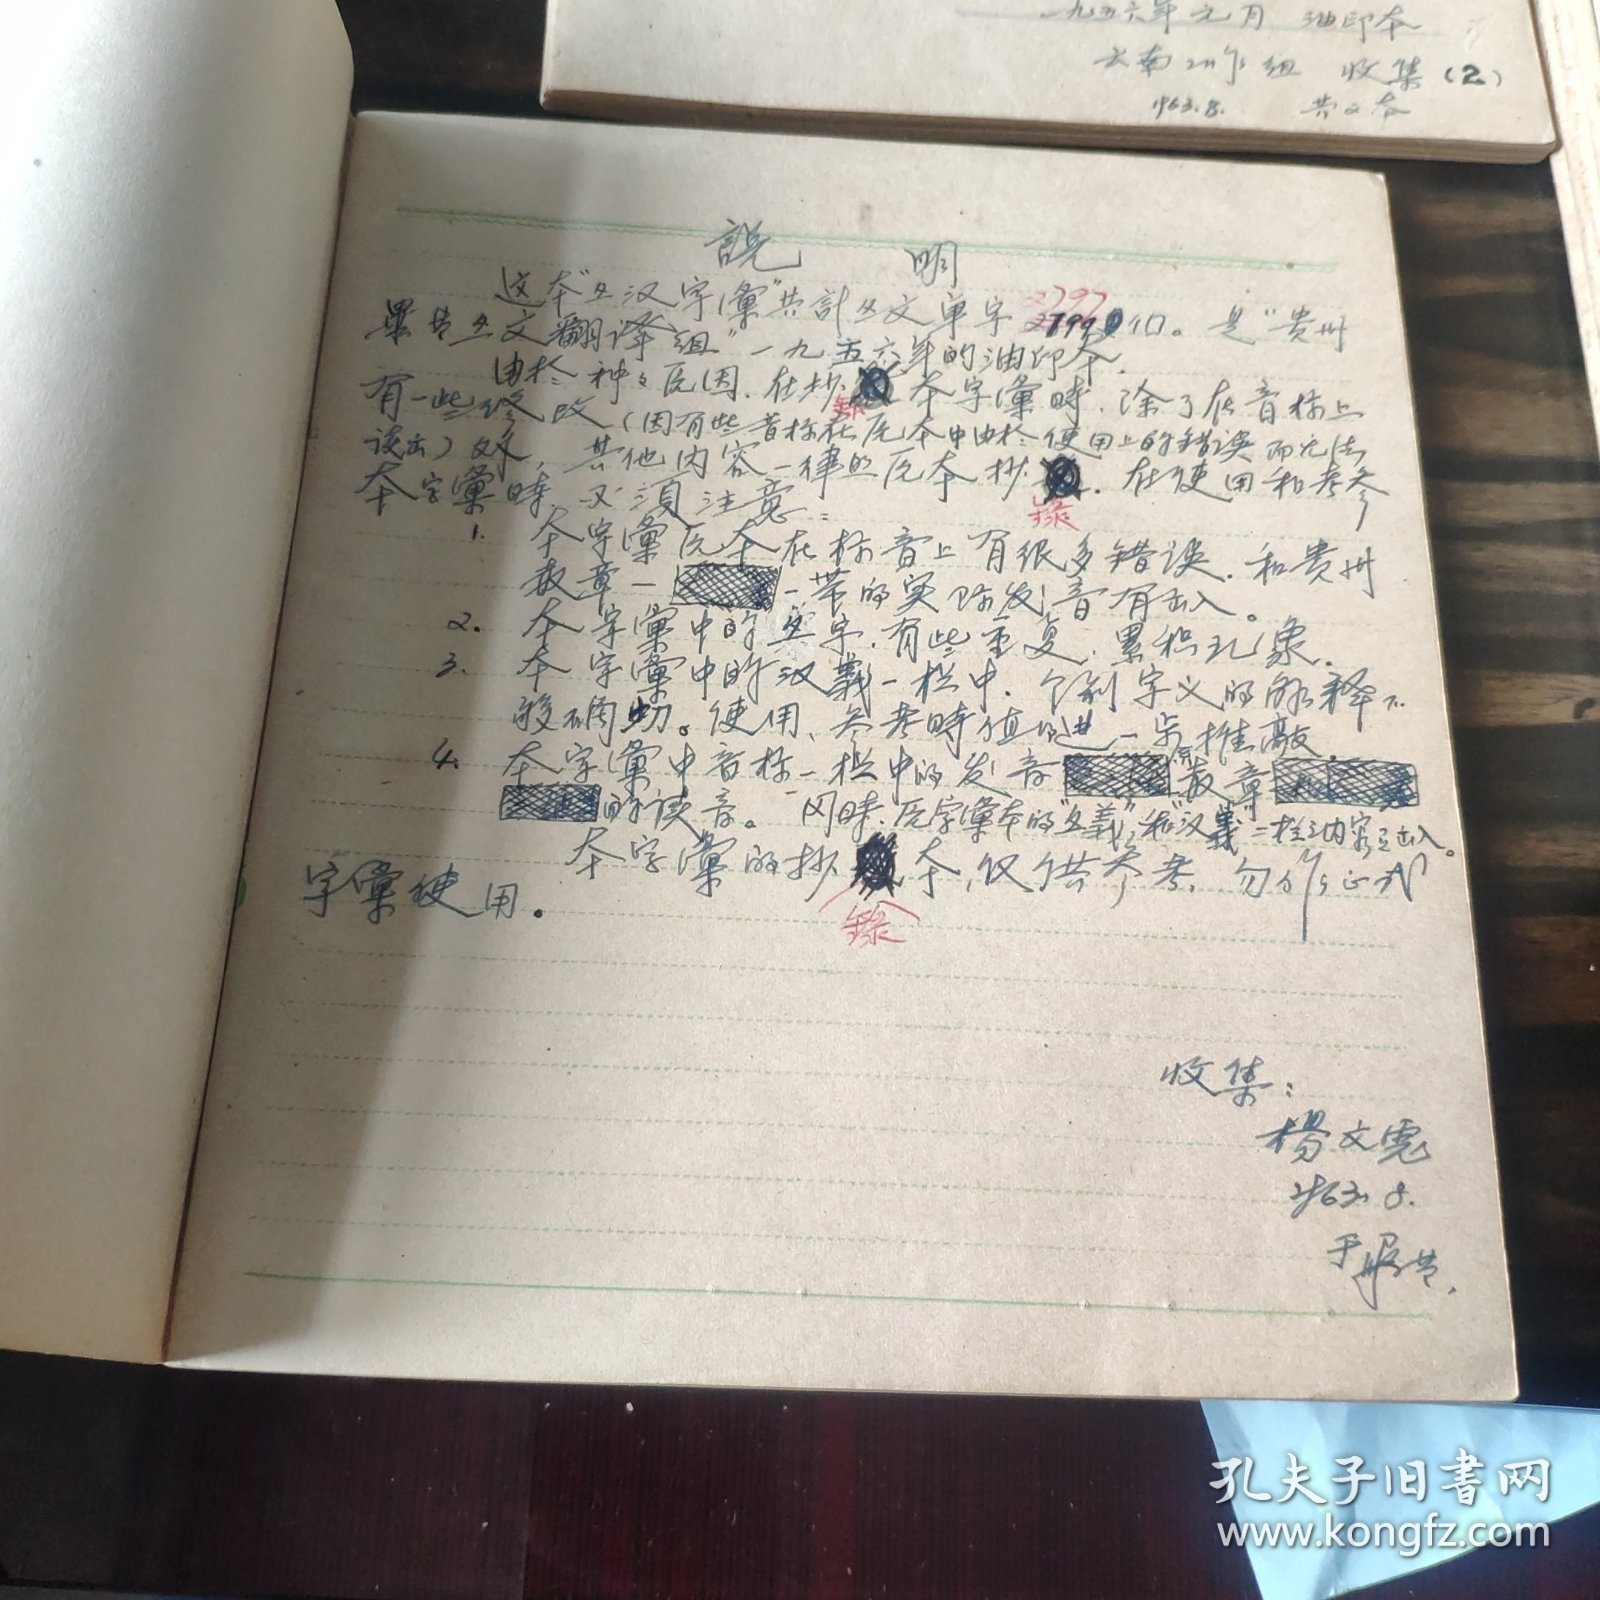 一九五六年元月 油印本
云南工作组 收集(2)
1963.8. 共2本
説 明
这本"彝汉字彙"共計彝文单字 2797 个。是"贵州
毕节彝文翻译组"一九五六年的油印本.
由於种种原因.在抄录本字彙時.除了在音标上
有一些修改(因有些音标在原本中由於使用上的错误而无法
读出)外,其他内容一律照原本抄录.在使用和参考
本字彙時必須注意:
1. 本字彙原本在标音上有很多错误.和贵州
毕节 一带的实际发音有出入。
2. 本字彙中的彝字.有些重复.累积现象.
3. 本字彙中的汉義一栏中.个别字义的解释不
够确切。使用、参考時值得进一步推敲.
4. 本字彙中音标一栏中的发音
的读音。同時.原字彙本的"彝義"和"汉義"二栏之内容有出入。
本字彙的抄录本,仅供参考,勿作正式
字彙使用。
收集:
楊文
1963.8.
于毕节.
孔夫子旧书网
www.kongfz.com